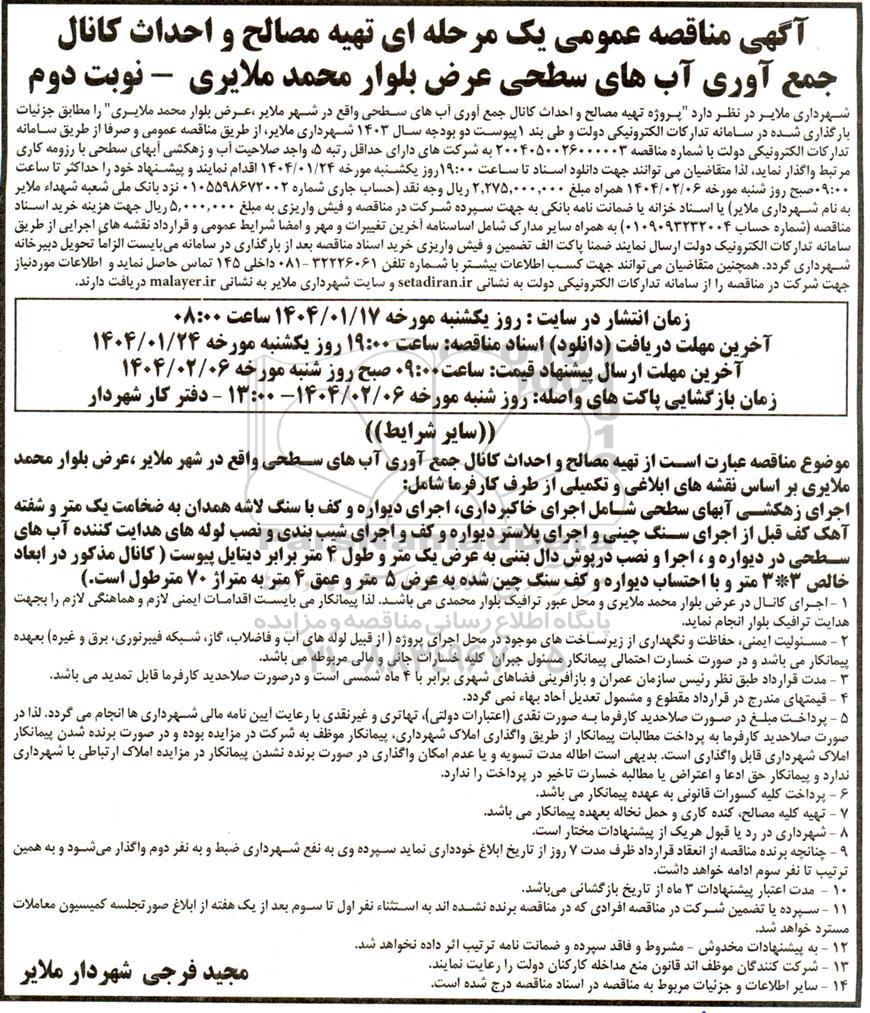 آگهی مناقصه عمومی یک مرحله ای تهیه مصالح و احداث کانال
جمع آوری آب های سطحی عرض بلوار محمد ملایری - نوبت دوم
شهرداری ملایر در نظر دارد "پروژه تهیه مصالح و احداث کانال جمع آوری آب های سطحی واقع در شهر ملایر ،عرض بلوار محمد ملایری" را مطابق جزئیات
بارگذاری شده در سامانه تدارکات الکترونیکی دولت و طی بند ۱پیوست دو بودجه سال ۱۴۰۳ شهرداری ملایر، از طریق مناقصه عمومی و صرفا از طریق سامانه
تدارکات الکترونیکی دولت با شماره مناقصه ۲۰۰۴۰۵۰۰۲۶۰۰۰۰۰۳ به شرکت های دارای حداقل رتبه ۵، واجد صلاحیت آب و زهکشی آبهای سطحی با رزومه کاری
مرتبط واگذار نماید، لذا متقاضیان می توانند جهت دانلود اسناد تا ساعت ۱۹:۰۰روز یکشنبه مورخه ۱۴۰۴/۰۱/۲۴ اقدام نمایند و پیشنهاد خود را حداکثر تا ساعت
۰۹:۰۰صبح روز شنبه مورخه ۱۴۰۴/۰۲/۰۶ همراه مبلغ ۲,۲۷۵,۰۰۰,۰۰۰ ریال وجه نقد (حساب جاری شماره ۰۱۰۵۵۹۸۶۷۲۰۰۲ نزد بانک ملی شعبه شهداء ملایر
به نام شهرداری ملایر) یا اسناد خزانه یا ضمانت نامه بانکی به جهت سپرده شرکت در مناقصه و فیش واریزی به مبلغ ۵,۰۰۰,۰۰۰ ریال جهت هزینه خرید اسناد
مناقصه (شماره حساب ۰۱۰۹۰۹۳۲۳۲۰۰۴) به همراه سایر مدارک شامل اساسنامه آخرین تغییرات و مهر و امضا شرایط عمومی و قرارداد نقشه های اجرایی از طریق
سامانه تدارکات الکترونیک دولت ارسال نمایند ضمنا پاکت الف تضمین و فیش واریزی خرید اسناد مناقصه بعد از بارگذاری در سامانه می‌بایست الزاما تحویل دبیرخانه
شهرداری گردد. همچنین متقاضیان می‌توانند جهت کسب اطلاعات بیشتر با شماره تلفن ۳۲۲۲۶۰۶۱-۰۸۱ داخلی ۱۴۵ تماس حاصل نماید و اطلاعات موردنیاز
جهت شرکت در مناقصه را از سامانه تدارکات الکترونیکی دولت به نشانی setadiran.ir و سایت شهرداری ملایر به نشانی malayer.ir دریافت دارند.
زمان انتشار در سایت : روز یکشنبه مورخه ۱۴۰۴/۰۱/۱۷ ساعت ۰۸:۰۰
آخرین مهلت دریافت (دانلود) اسناد مناقصه: ساعت ۱۹:۰۰ روز یکشنبه مورخه ۱۴۰۴/۰۱/۲۴
آخرین مهلت ارسال پیشنهاد قیمت: ساعت۰۹:۰۰ صبح روز شنبه مورخه ۱۴۰۴/۰۲/۰۶
زمان بازگشایی پاکت های واصله: روز شنبه مورخه ۱۴۰۴/۰۲/۰۶- ۱۳:۰۰ - دفتر کار شهردار
((سایر شرایط))
موضوع مناقصه عبارت است از تهیه مصالح و احداث کانال جمع آوری آب های سطحی واقع در شهر ملایر ،عرض بلوار محمد
ملایری بر اساس نقشه های ابلاغی و تکمیلی از طرف کارفرما شامل:
اجرای زهکشی آبهای سطحی شامل اجرای خاکبرداری، اجرای دیواره و کف با سنگ لاشه همدان به ضخامت یک متر و شفته
آهک کف قبل از اجرای سنگ چینی و اجرای پلاستر دیواره و کف و اجرای شیب بندی و نصب لوله های هدایت کننده آب های
سطحی در دیواره و ، اجرا و نصب درپوش دال بتنی به عرض یک متر و طول ۴ متر برابر دیتایل پیوست ( کانال مذکور در ابعاد
خالص ۳*۳ متر و با احتساب دیواره و کف سنگ چین شده به عرض ۵ متر و عمق ۴ متر به متراژ ۷۰ مترطول است.)
۱ - اجرای کانال در عرض بلوار محمد ملایری و محل عبور ترافیک بلوار محمدی می باشد. لذا پیمانکار می بایست اقدامات ایمنی لازم و هماهنگی لازم را بجهت
هدایت ترافیک بلوار انجام نماید.
۲ - مسئولیت ایمنی، حفاظت و نگهداری از زیرساخت های موجود در محل اجرای پروژه ( از قبیل لوله های آب و فاضلاب، گاز، شبکه فیبرنوری، برق و غیره) بعهده
پیمانکار می باشد و در صورت خسارت احتمالی پیمانکار مسئول جبران کلیه خسارات جانی و مالی مربوطه می باشد.
۳ - مدت قرارداد طبق نظر رئیس سازمان عمران و بازآفرینی فضاهای شهری برابر با ۴ ماه شمسی است و درصورت صلاحدید کارفرما قابل تمدید می باشد.
۴ - قیمتهای مندرج در قرارداد مقطوع و مشمول تعدیل آحاد بهاء نمی گردد.
۵ - پرداخت مبلغ در صورت صلاحدید کارفرما به صورت نقدی (اعتبارات دولتی)، تهاتری و غیرنقدی با رعایت آیین نامه مالی شهرداری ها انجام می گردد. لذا در
صورت صلاحدید کارفرما به پرداخت مطالبات پیمانکار از طریق واگذاری املاک شهرداری، پیمانکار موظف به شرکت در مزایده بوده و در صورت برنده شدن پیمانکار
املاک شهرداری قابل واگذاری است. بدیهی است اطاله مدت تسویه و یا عدم امکان واگذاری در صورت برنده نشدن پیمانکار در مزایده املاک ارتباطی با شهرداری
ندارد و پیمانکار حق ادعا و اعتراض یا مطالبه خسارت تاخیر در پرداخت را ندارد.
۶ - پرداخت کلیه کسورات قانونی به عهده پیمانکار می باشد.
۷ - تهیه کلیه مصالح، کنده کاری و حمل نخاله بعهده پیمانکار می باشد.
۸ - شهرداری در رد یا قبول هریک از پیشنهادات مختار است.
۹ - چنانچه برنده مناقصه از انعقاد قرارداد ظرف مدت ۷ روز از تاریخ ابلاغ خودداری نماید سپرده وی به نفع شهرداری ضبط و به نفر دوم واگذار می‌شود و به همین
ترتیب تا نفر سوم ادامه خواهد داشت.
۱۰ - مدت اعتبار پیشنهادات ۳ ماه از تاریخ بازگشائی می‌باشد.
۱۱ - سپرده یا تضمین شرکت در مناقصه افرادی که در مناقصه برنده نشده اند به استثناء نفر اول تا سوم بعد از یک هفته از ابلاغ صورتجلسه کمیسیون معاملات
مسترد خواهد شد.
۱۲ - به پیشنهادات مخدوش - مشروط و فاقد سپرده و ضمانت نامه ترتیب اثر داده نخواهد شد.
۱۳ - شرکت کنندگان موظف اند قانون منع مداخله کارکنان دولت را رعایت نمایند.
۱۴ - سایر اطلاعات و جزئیات مربوط به مناقصه در اسناد مناقصه درج شده است.
مجید فرجی شهردار ملایر
پایگاه اطلاع رسانی مناقصه و مزایده